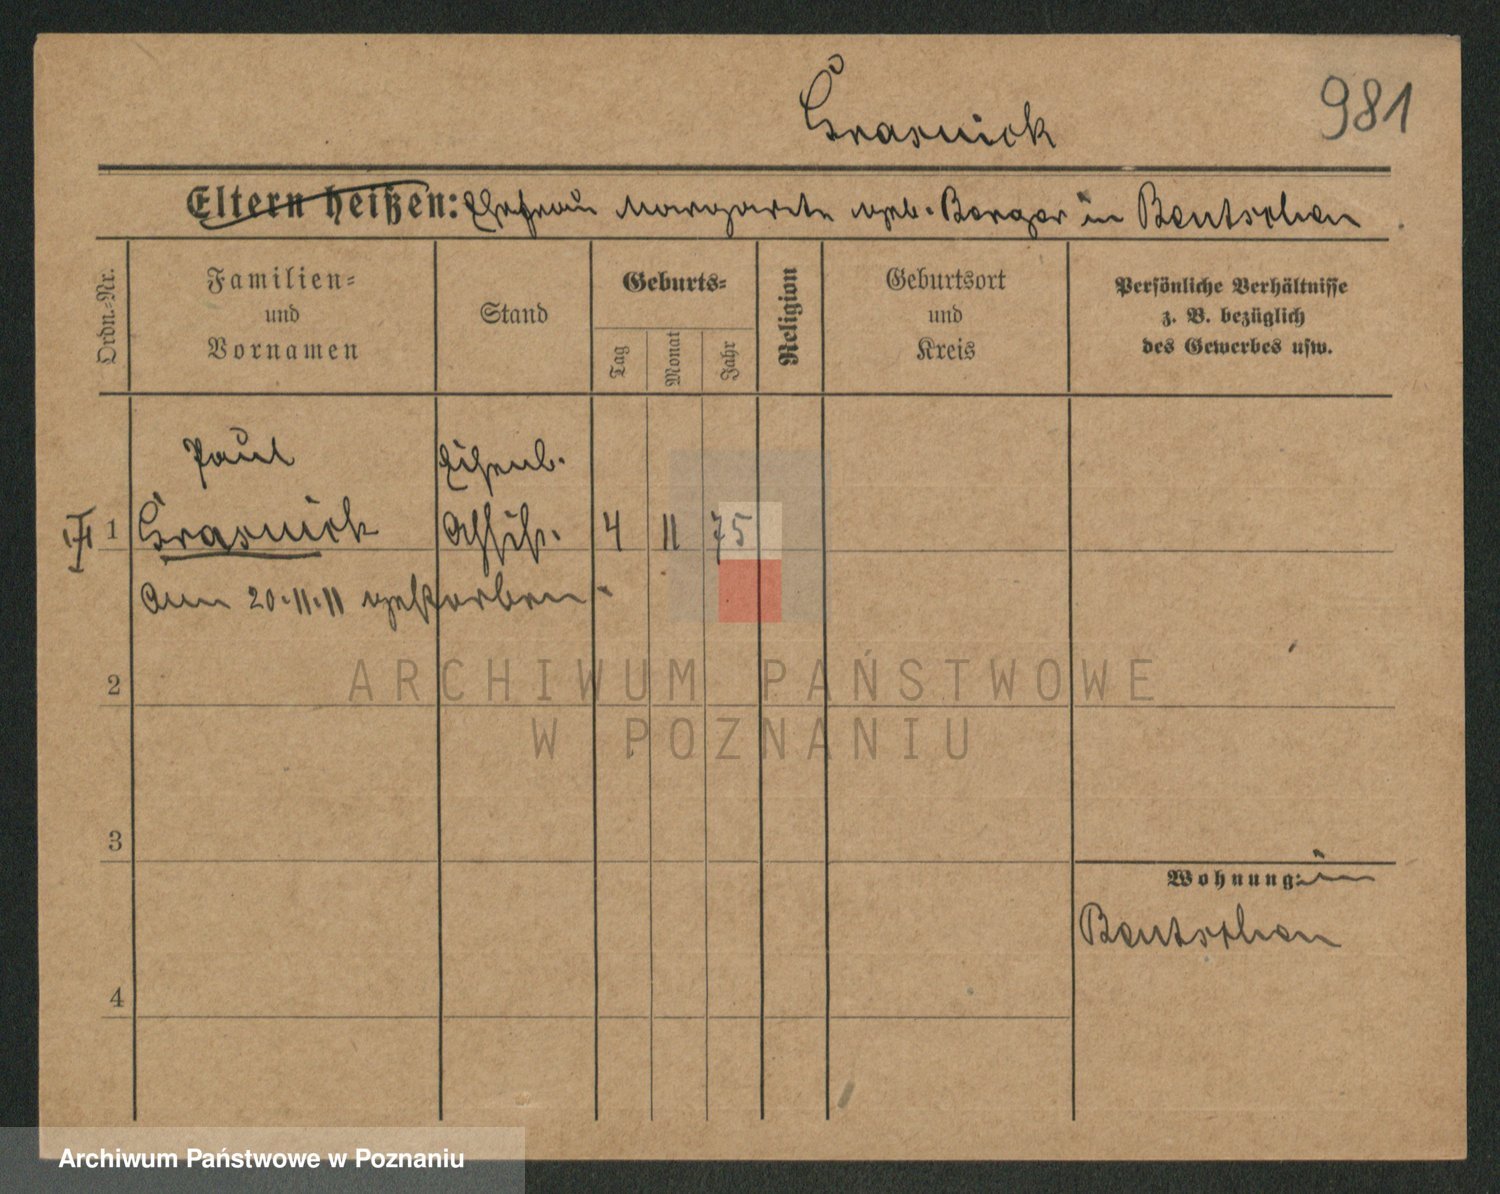 Grasnick
981
Eltern heißen: Ehefrau Margarete geb. Berger in Bentschen
Ordn.-Nr.
Familien-
und
Vornamen
Stand
Geburts-
Tag
Monat
Jahr
Religion
Geburtsort
und
Kreis
Persönliche Verhältnisse
z. B. bezüglich
des Gewerbes usw.
Paul
Eisenb.
1 Grasnick Assist. 4 11 75
Am 20.11.11 gestorben.
2
3
Wohnung: in
Bentschen
4
ARCHIWUM PAŃSTWOWE
W POZNANIU
Archiwum Państwowe w Poznaniu